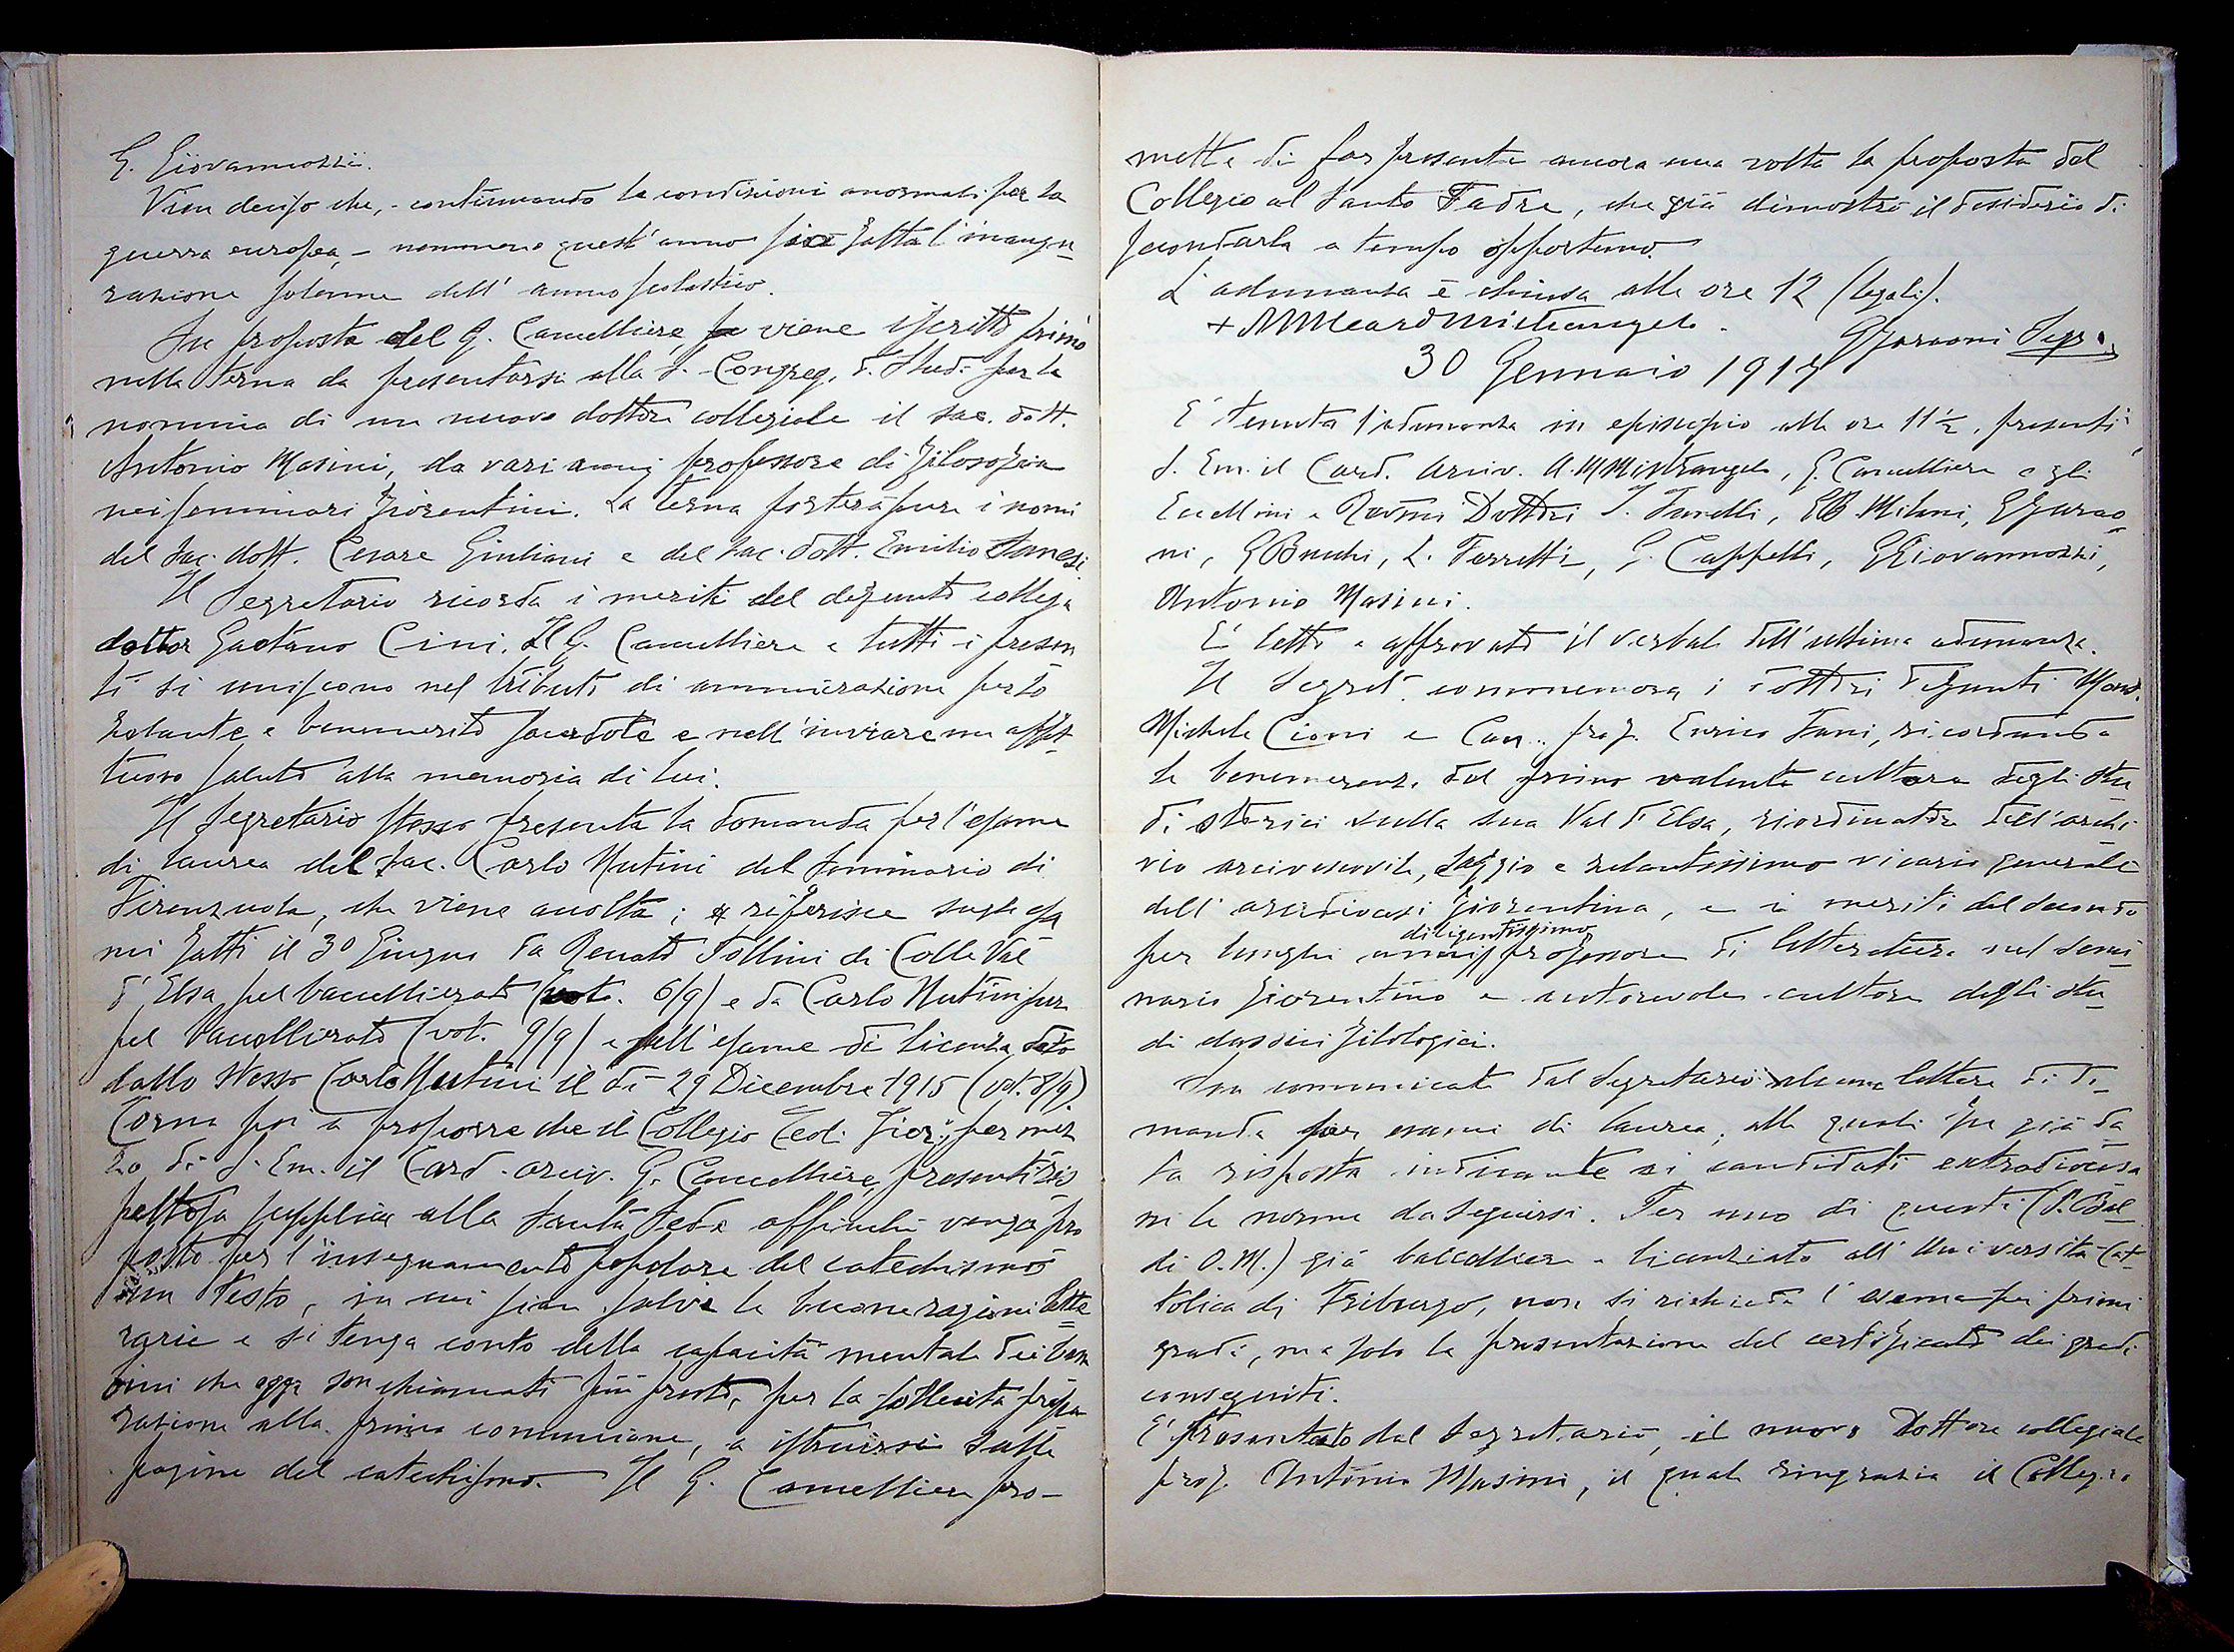 G. Giovannozzi.
Vien deciso che, - continuando le condizioni anormali per la
guerra europea, - nemmeno quest'anno sia fatta l'inaugu=
razione solenne dell'anno scolastico.
Su proposta del G. Cancelliere viene iscritto primo
nella terna da presentarsi alla S. Congreg. d. Studi per la
nomina di un nuovo dottore collegiale il sac. dott.
Antonio Masini, da vari anni professore di filosofia
nei seminari fiorentini. La terna porterà pure i nomi
del sac. dott. Cesare Giuliani e del sac. dott. Emilio Sanesi.
Il Segretario ricorda i meriti del defunto collega
dottor Gaetano Cini. Il G. Cancelliere e tutti i presen
ti si uniscono nel tributo di ammirazione per lo
zelante e benemerito sacerdote e nell'inviare un affet-
tuoso saluto alla memoria di lui.
Il segretario stesso presenta la domanda per l'esame
di laurea del sac. Carlo Nutini del Seminario di
Firenzuola, che viene accolta; riferisce sugli esa
mi fatti il 30 Giugno da Renato Pollini di Colle Val
d'Elsa pel baccellierato (vot. 6/9) e da Carlo Nutini pur
pel baccellierato (vot. 9/9) e sull'esame di licenza dato
dallo stesso Carlo Nutini il dì 29 Dicembre 1915 (vot. 8/9).
Torna poi a proporre che il Collegio Teol. Fior., per mez
zo di S. Em. il Card. arciv. G. Cancelliere, presenti ris
pettosa supplica alla Santa Sede affinchè venga pro
posto per l'insegnamento popolare del catechismo
un testo, in cui sian salve le buone ragioni lette
rarie e si tenga conto della capacità mentale dei bam
bini che oggi son chiamati più presto, per la sollecita prepa
razione alla prima comunione, a istruirsi sulle
pagine del catechismo. Il G. Cancelliere pro-
mette di far presente ancora una volta la proposta del
Collegio al Santo Padre, che già dimostrò il desiderio di
secondarla a tempo opportuno.
L'adunanza è chiusa alle ore 12 (legali).
+ AM Card Mistrangelo.
Segr.
30 Gennaio 1917
E' tenuta l'adunanza in episcopio alle ore 11 1/2, presenti
S. Em. il Card. Arciv. A. M Mistrangelo, G. Cancelliere e gli
Eccell.mi e Rev.mi Dottori I. Fanelli, EB Milani,
ni, G Bucchi, L. Ferretti, G. Cappelli, G Giovannozzi,
Antonio Masini.
E' letto e approvato il verbale dell'ultima adunanza.
Il Segret. commemora i dottori defunti Mons.
Michele Cioni e Can. prof. Enrico Fani, ricordando
le benemerenze del primo valente cultore degli stu
di storici sulla sua Val d'Elsa, riordinatore dell'archi
vio arcivescovile, saggio e zelantissimo vicario generale
dell'arcidiocesi fiorentina, e i meriti del secondo
diligentissimo
per lunghi anni professore di letteratura nel Semi
nario fiorentino e autorevole cultore degli stu
di classici filologici.
Son comunicate dal Segretario alcune lettere di do
manda per esami di laurea, alle quali fu già da
ta risposta indicante ai candidati extradiocesa
ni le norme da seguirsi. Per uno di questi (P. Bal
di O.M.) già baccelliere e licenziato all'Università Cat-
tolica di Friburgo, non si richiede l'esame pei primi
gradi, ma solo la presentazione del certificato dei gradi
conseguiti.
E' presentato dal Segretario, il nuovo Dottore collegiale
prof. Antonio Masini, il quale ringrazia il Collegio